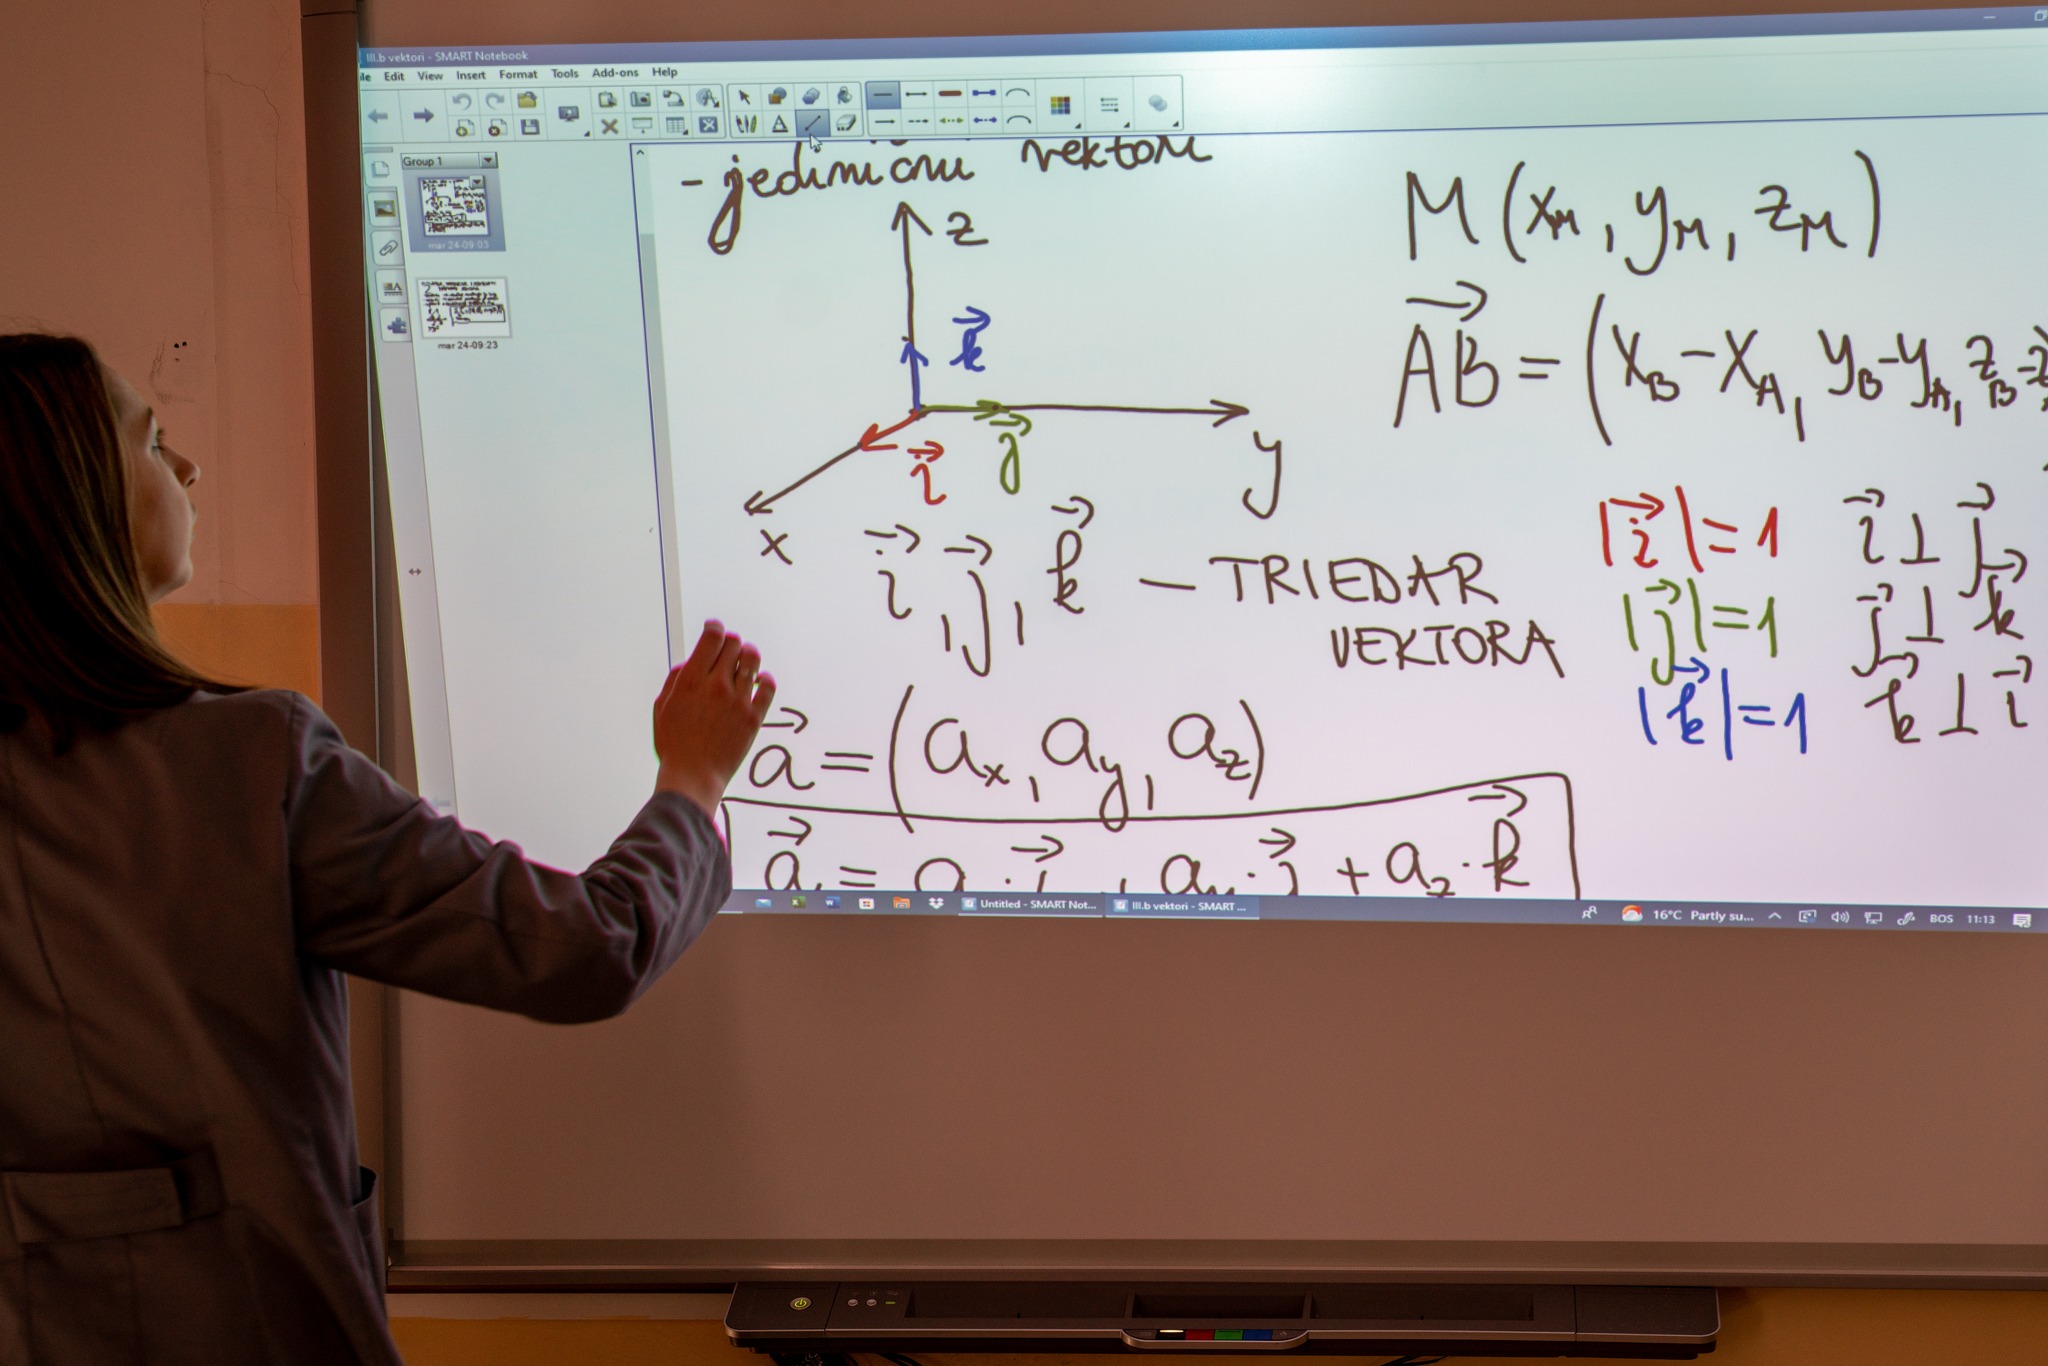 III.b vektori - SMART Notebook
Edit View Insert Format Tools Add-ons Help
Group 1
mar 24-09:03
mar 24-09:23
- jedinični vektori
z
k⃗
j⃗
i⃗
y
x
i⃗, j⃗, k⃗ — TRIEDAR
VEKTORA
a⃗ = (aₓ, a_y, a_z)
a⃗ = a · i⃗ + a_y · j⃗ + a_z · k⃗
M (x_M, y_M, z_M)
A⃗B⃗ = (x_B - x_A, y_B - y_A, z_B - z
|i⃗| = 1 i⃗ ⊥ j⃗
|j⃗| = 1 j⃗ ⊥ k⃗
|k⃗| = 1 k⃗ ⊥ i⃗
Untitled - SMART Not... III.b vektori - SMART ... 16°C Partly su... BOS 11:13